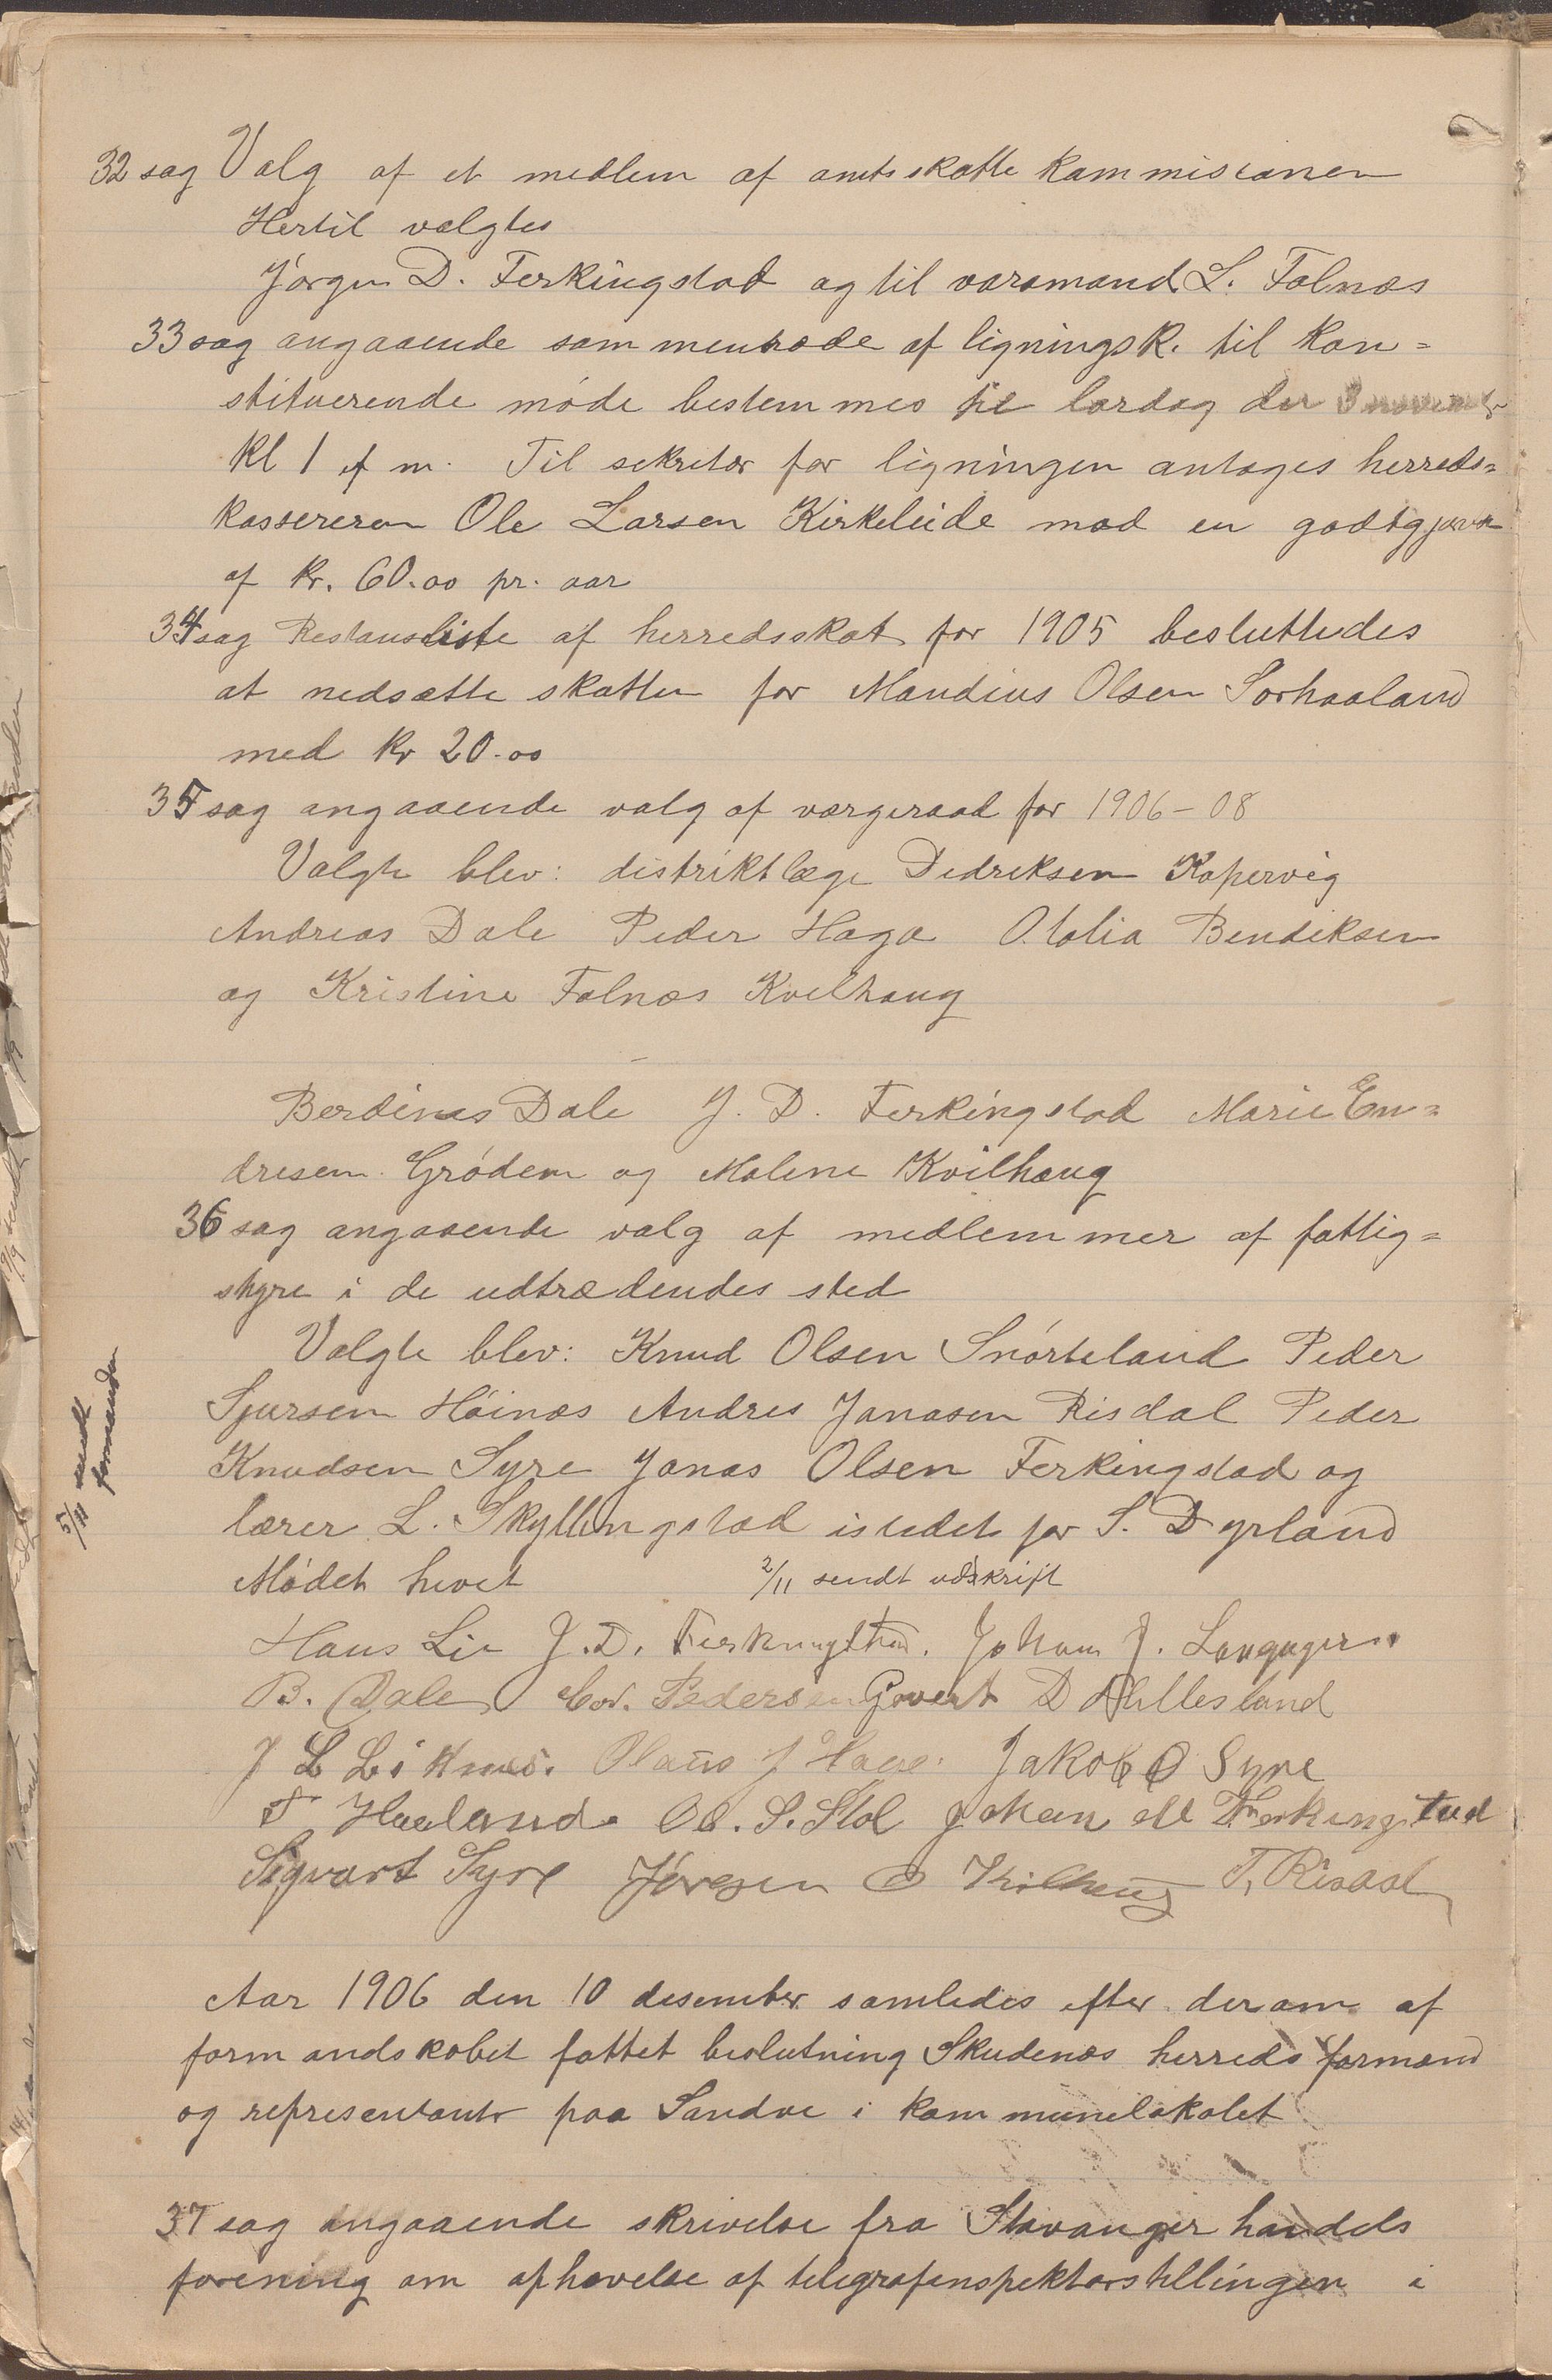 32 sag Valg af et medlem af amtsskattekommisionen
Hertil valgtes
Jørgen D. Ferkingstad og til varamand L. Falnæs
33 sag angaaende sammentræde af ligningsk. til kon=
stituerende møde bestemmes til lørdag den 3 november
kl 1 ef m. Til sekretær for ligningen antages herreds=
kassereren Ole Larsen Kirkeleide mod en godtgjørelse
af kr. 60.00 pr. aar
34 sag Restansliste af herredsskat for 1905 besluttedes
at nedsætte skatten for Mandius Olsen Sørhaaland
med kr 20.00
35 sag angaaende valg af værgeraad for 1906-08
Valgte blev: distriktlæge Dedreksen Kopervig
Andreas Dale Peder Haga Otolia Bendiksen
og Kristine Falnæs Kvilhaug
Berdines Dale J. D. Ferkingstad Marie En=
dresen Grødem og Malene Kvilhaug
36 sag angaaende valg af medlemmer af fattig=
styre i de udtrædendes sted
Valgte blev: Knud Olsen Snørteland Peder
Sjursen Høinæs Andres Janasen Risdal Peder
Knudsen Syre Jonas Olsen Ferkingstad og
lærer L. Skyllingstad istedet for S. Dyrland
5/11 sendt formanden
Mødet hævet 2/11 sendt udskrift
Hans Lie J. D. Ferkingstad. Johan J. Langager
B. Dale Pedersen Govert D Hillesland
J L Liknes. Olaus J Hage. Jakob O Syre
T Haaland. Ol. S. Stol Johan M Ferkingstad
Sigvart Syre Jørgen O Kvilhaug T, Risdal
Aar 1906 den 10 desember samledes efter derom af
formandskabet fattet beslutning Skudenæs herreds formænd
og representanter paa Sandve i kommunelokalet
37 sag angaaende skrivelse fra Stavanger handels
forening om ophævelse af telegrafenspektørstillingen i